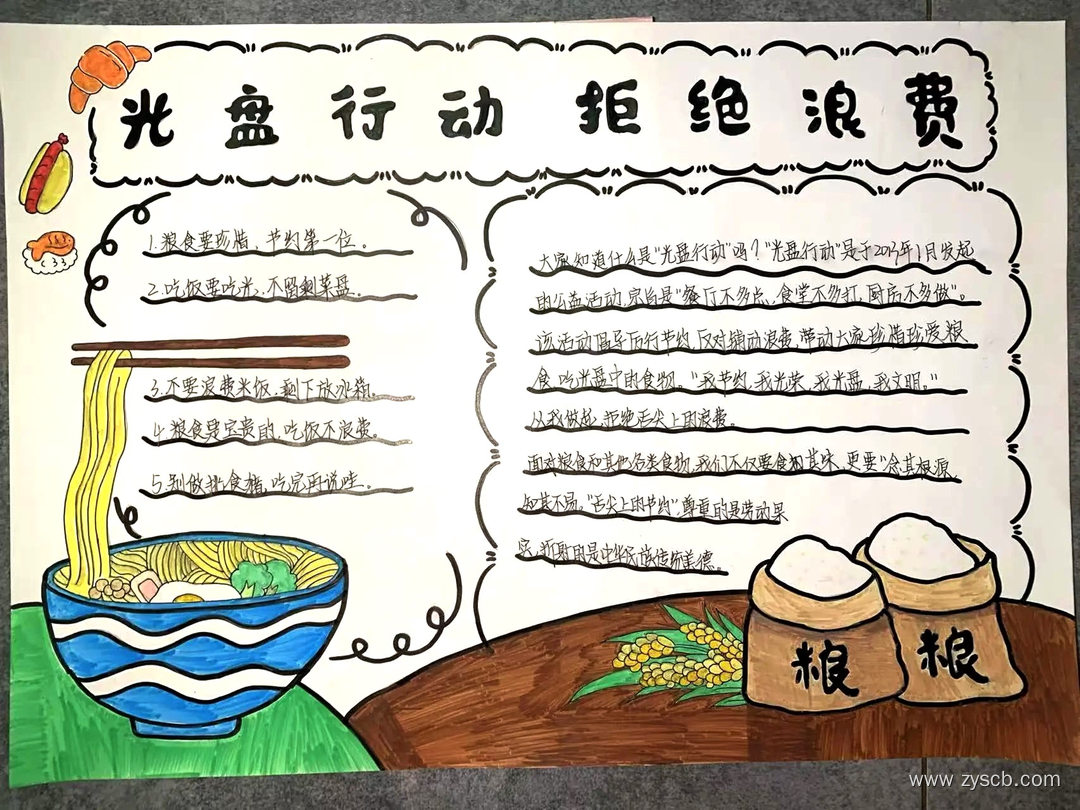 光盘行动 拒绝浪费
1.粮食要珍惜、节约第一位。
2.吃饭要吃光、不留剩菜盘。
3.不要浪费米饭,剩下放冰箱。
4.粮食是宝贵的,吃饭不浪费。
5.别做挑食猫,吃完再说哇。
大家知道什么是“光盘行动”吗?“光盘行动”是于2013年1月发起
的公益活动,宗旨是“餐厅不多点、食堂不多打、厨房不多做”。
该活动倡导厉行节约,反对铺张浪费,带动大家珍惜珍爱粮
食,吃光盘中的食物。“我节约,我光荣,我光盘,我文明。”
从我做起,拒绝舌尖上的浪费。
面对粮食和其他各类食物,我们不仅要食知其味,更要“念其根源、
知其不易。“舌尖上的节约”,尊重的是劳动果
实,折射的是中华民族传统美德。
粮
粮
www.zyscb.com